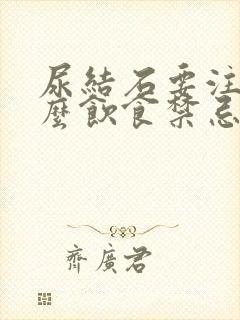 尿結石要注
麼飲食禁忌
齊廣君